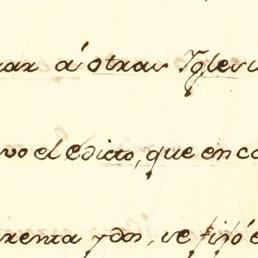 rar á otras Iglesi
vo el edicto, que en co
renta y dos, se fixó e